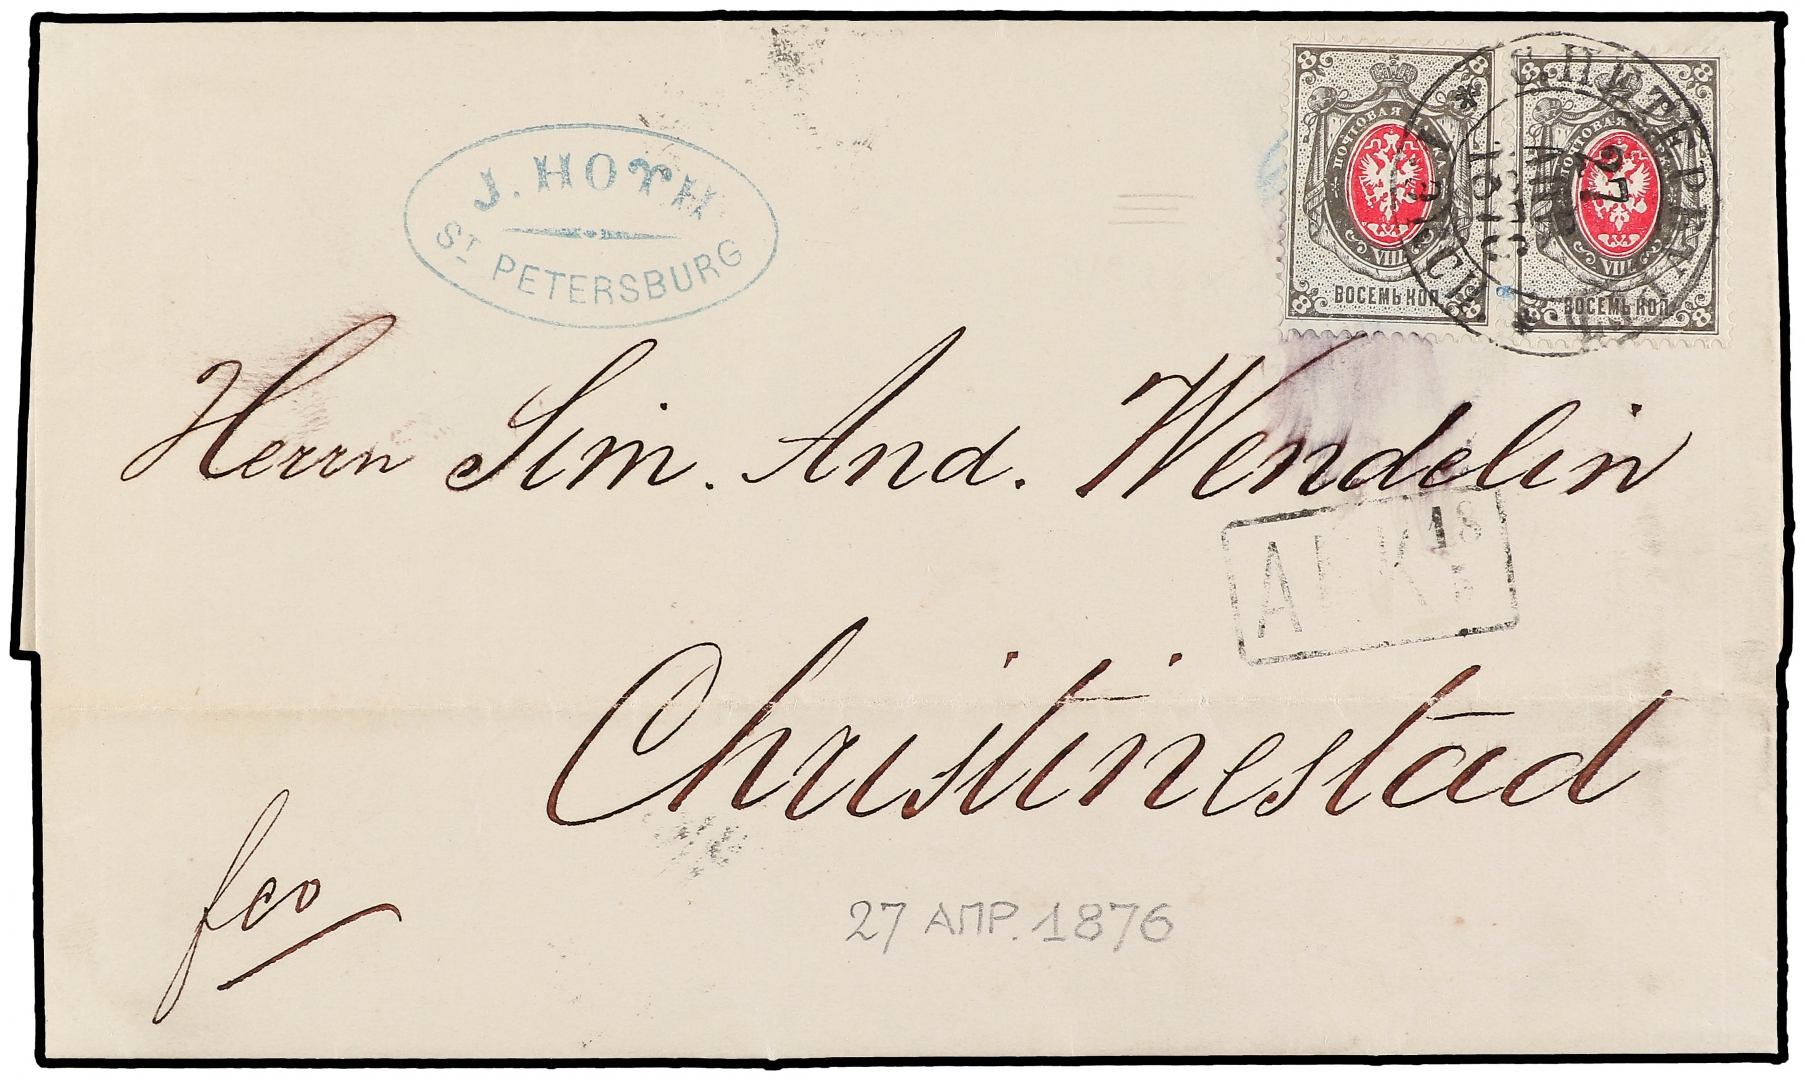 J. HOTH
ST. PETERSBURG
8 8
ПОЧТОВАЯ МАРКА
VIII
ВОСЕМЬ КОП.
8 8
8
ПОЧТОВАЯ
VIII
ВОСЕМЬ КОП.
8 8
С.ПЕТЕРБУРГ
27
АПР
1876
Herrn Sim. And. Wendelin
ANK 18
5
Christinestad
fco
27 АПР. 1876